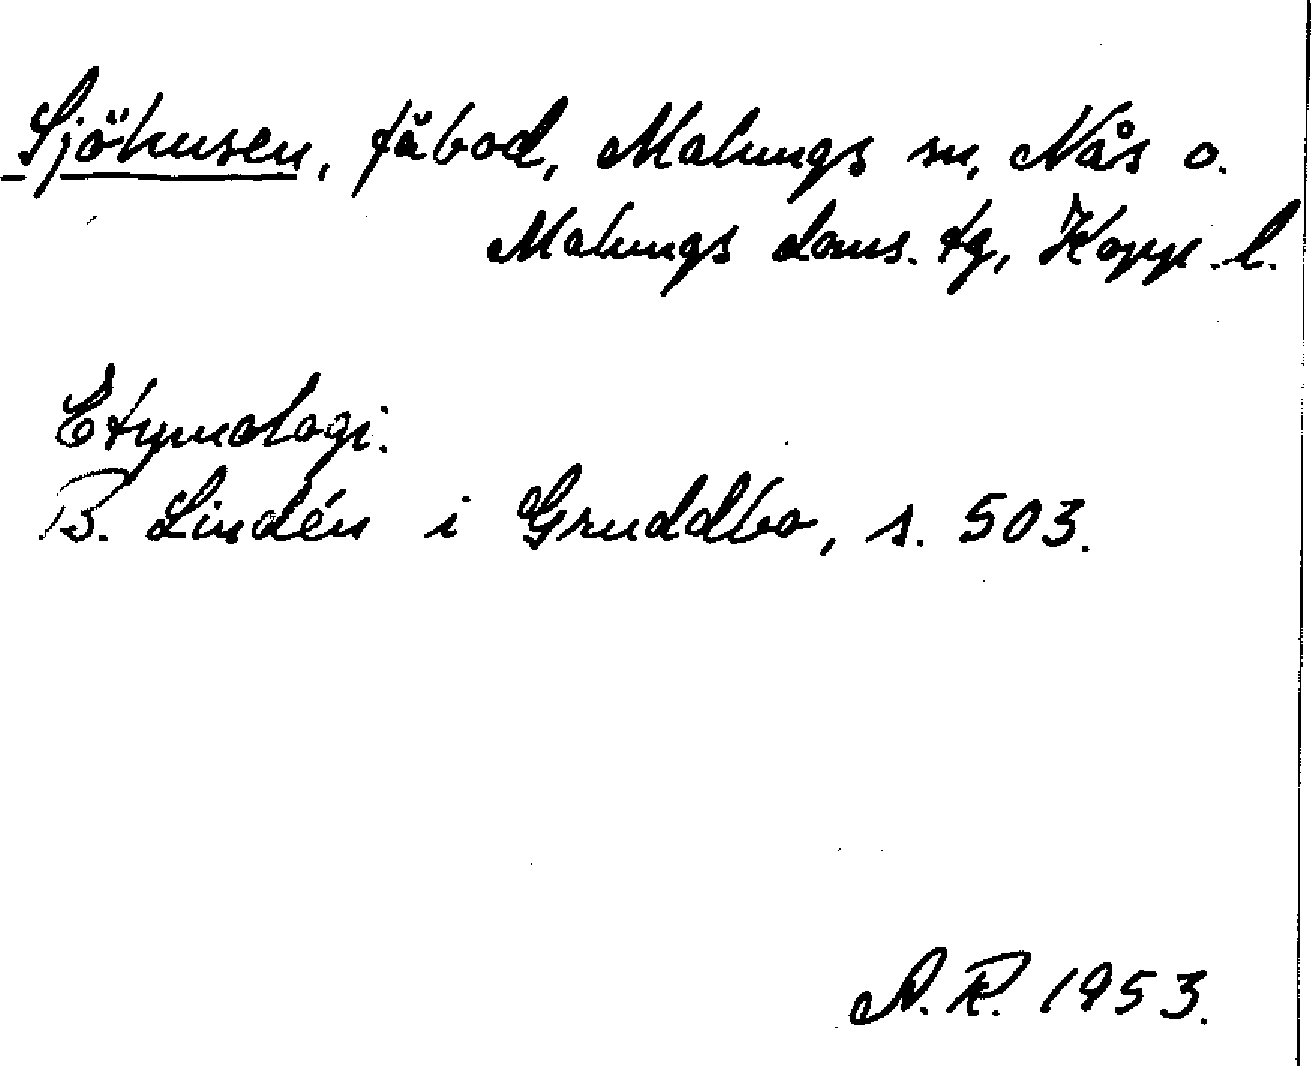 Sjöhusen, fäbod, Malungs sn, Nås o.
Malungs doms. tg, Kopp. l.
Etymologi.
B. Lindén i Gruddbo, s. 503.
A. R. 1953.